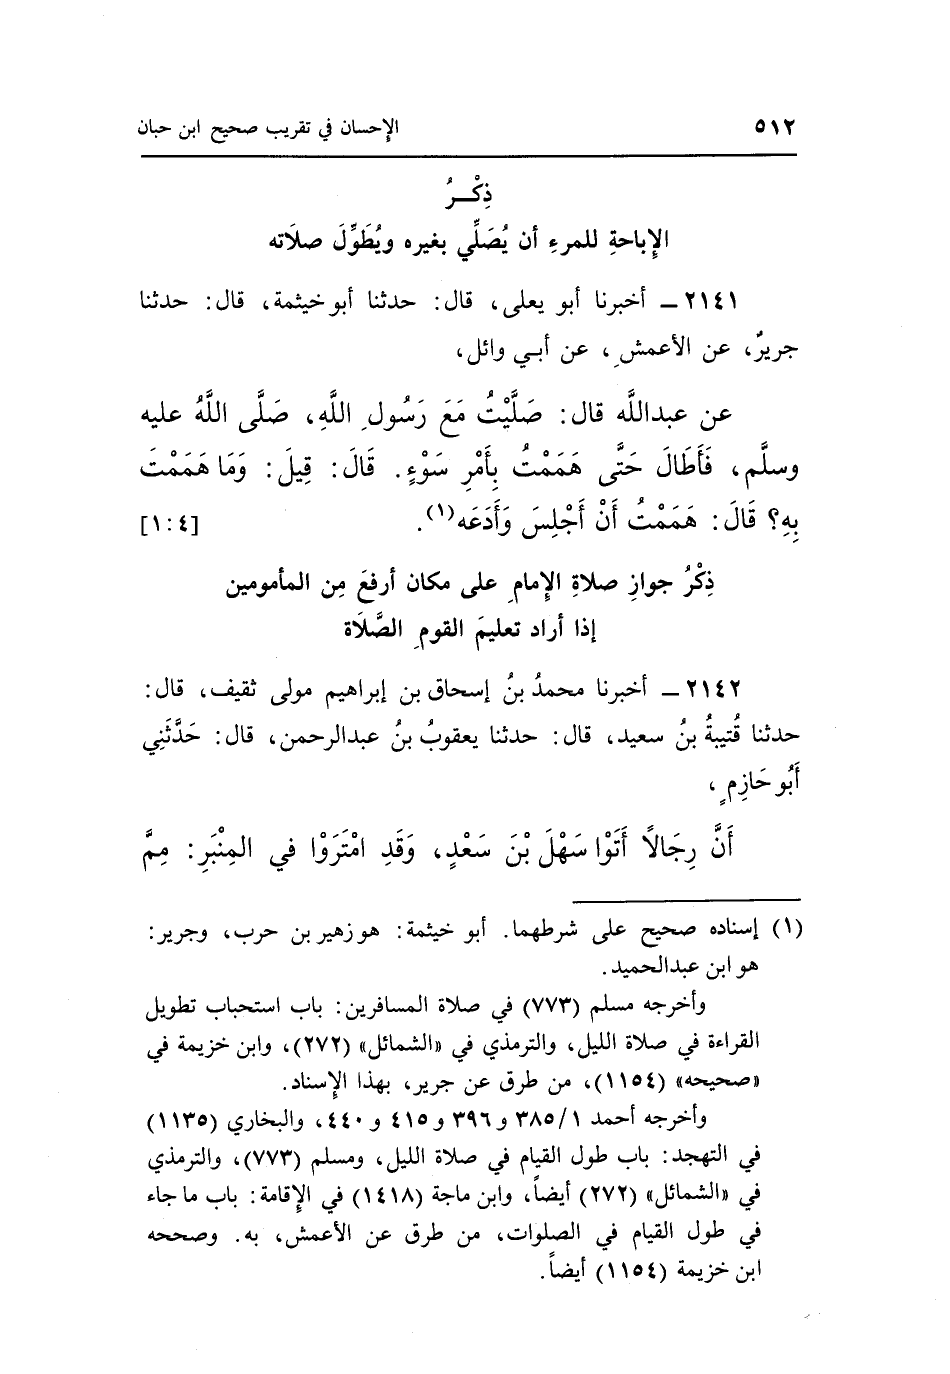 ٥١٢ الإحسان في تقريب صحيح ابن حبان
ذِكْـــرُ
الإِباحةِ للمرءِ أن يُصَلِّي بغيره ويُطَوِّلَ صلاَته
٢١٤١ ــ أخبرنا أبو يعلى، قال: حدثنا أبو خيثمة، قال: حدثنا
جريرٌ، عن الأعمشِ، عن أبـي وائل،
عن عبدالله قال: صَلَّيْتُ مَعَ رَسُولِ اللَّهِ، صَلَّى اللَّهُ عليه
وسلَّم، فَأَطَالَ حَتَّى هَمَمْتُ بِأَمْرِ سَوْءٍ. قَالَ: قِيلَ: وَمَا هَمَمْتَ
بِهِ؟ قَالَ: هَمَمْتُ أَنْ أَجْلِسَ وَأَدَعَه(١). [١:٤]
ذِكْرُ جوازِ صلاةِ الإِمامِ على مكان أرفعَ مِن المأمومين
إذا أراد تعليمَ القومِ الصَّلَاة
٢١٤٢ ــ أخبرنا محمدُ بنُ إسحاق بن إبراهيم مولى ثقيف، قال:
حدثنا قُتيبةُ بنُ سعيد، قال: حدثنا يعقوبُ بنُ عبدالرحمن، قال: حَدَّثَنِي
أَبُو حَازِمٍ،
أَنَّ رِجَالاً أَتَوْا سَهْلَ بْنَ سَعْدٍ، وَقَدِ امْتَرَوْا في المِنْبَرِ: مِمَّ
(١) إسناده صحيح على شرطهما. أبو خيثمة: هو زهير بن حرب، وجرير:
هو ابن عبدالحميد.
وأخرجه مسلم (٧٧٣) في صلاة المسافرين: باب استحباب تطويل
القراءة في صلاة الليل، والترمذي في «الشمائل» (٢٧٢)، وابن خزيمة في
«صحيحه» (١١٥٤)، من طرق عن جرير، بهذا الإِسناد.
وأخرجه أحمد ٣٨٥/١ و٣٩٦ و٤١٥ و٤٤٠، والبخاري (١١٣٥)
في التهجد: باب طول القيام في صلاة الليل، ومسلم (٧٧٣)، والترمذي
في «الشمائل» (٢٧٢) أيضاً، وابن ماجة (١٤١٨) في الإِقامة: باب ما جاء
في طول القيام في الصلوات، من طرق عن الأعمش، به. وصححه
ابن خزيمة (١١٥٤) أيضاً.